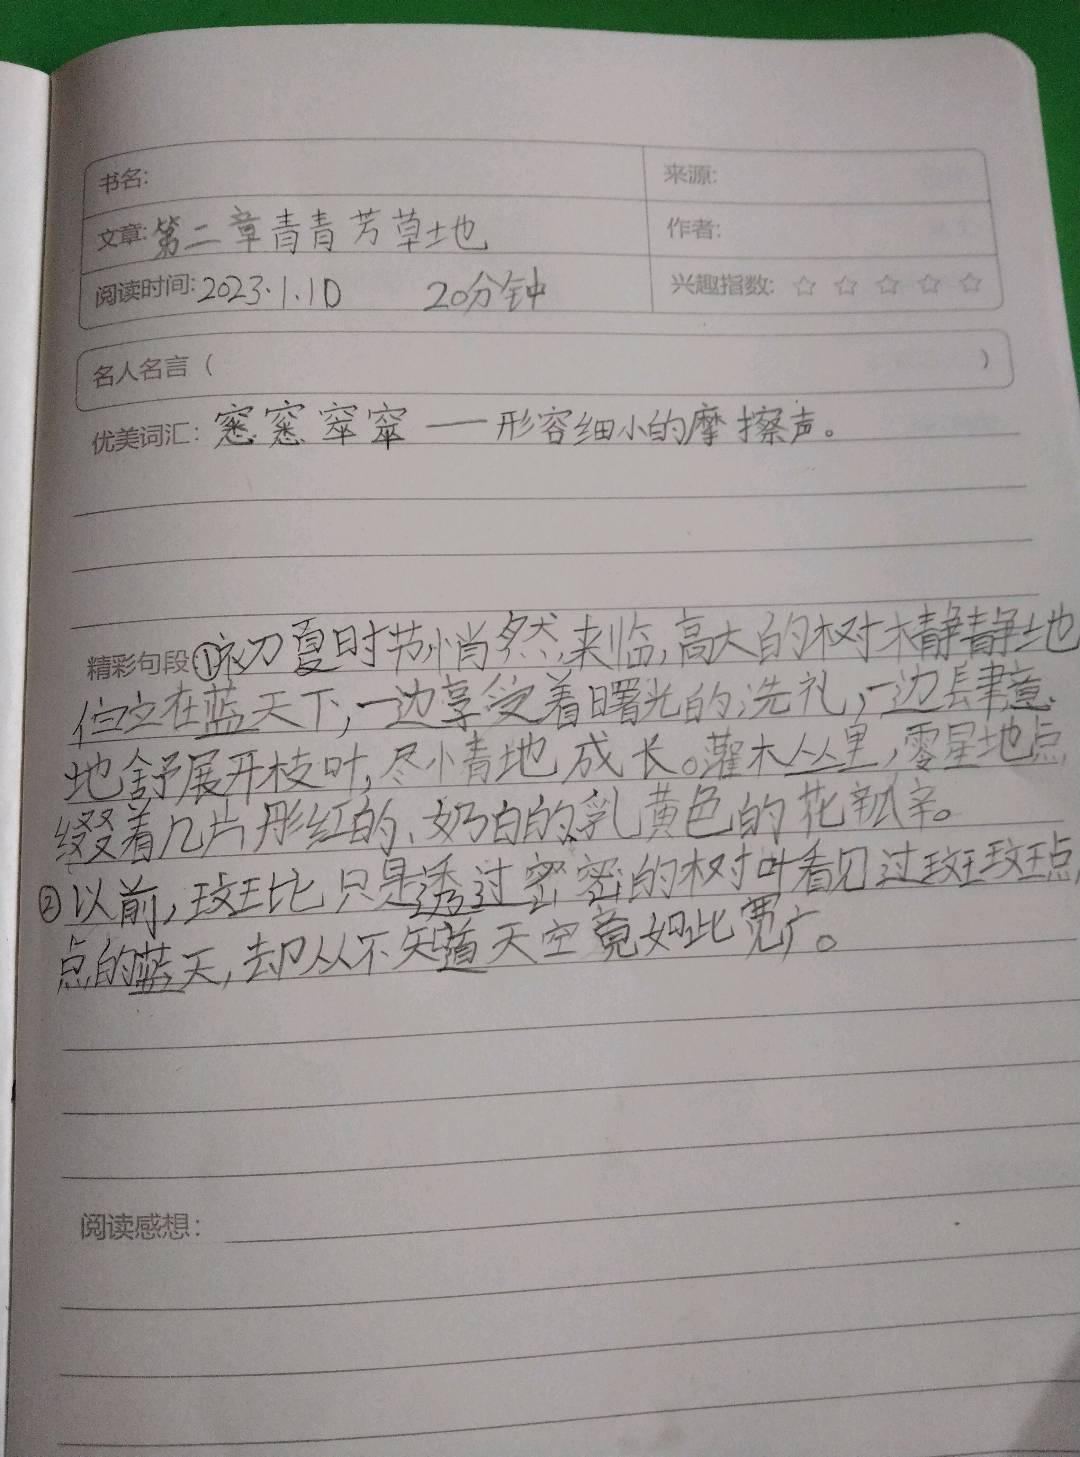 书名:
来源:
文章: 第二章青青芳草地
作者:
阅读时间: 2023.1.10 20分钟
兴趣指数: ☆ ☆ ☆ ☆ ☆
名人名言 ( )
优美词汇: 窸窸窣窣——形容细小的摩擦声。
精彩句段 ①初夏时节悄然来临,高大的树木静静地
伫立在蓝天下,一边享受着曙光的洗礼,一边肆意
地舒展开枝叶,尽情地成长。灌木丛里,零星地点
缀着几片彤红的、奶白的、乳黄色的花瓣。
②以前,斑比只是透过密密的树叶看见过斑斑点
点的蓝天,却从不知道天空竟如此宽广。
阅读感想: